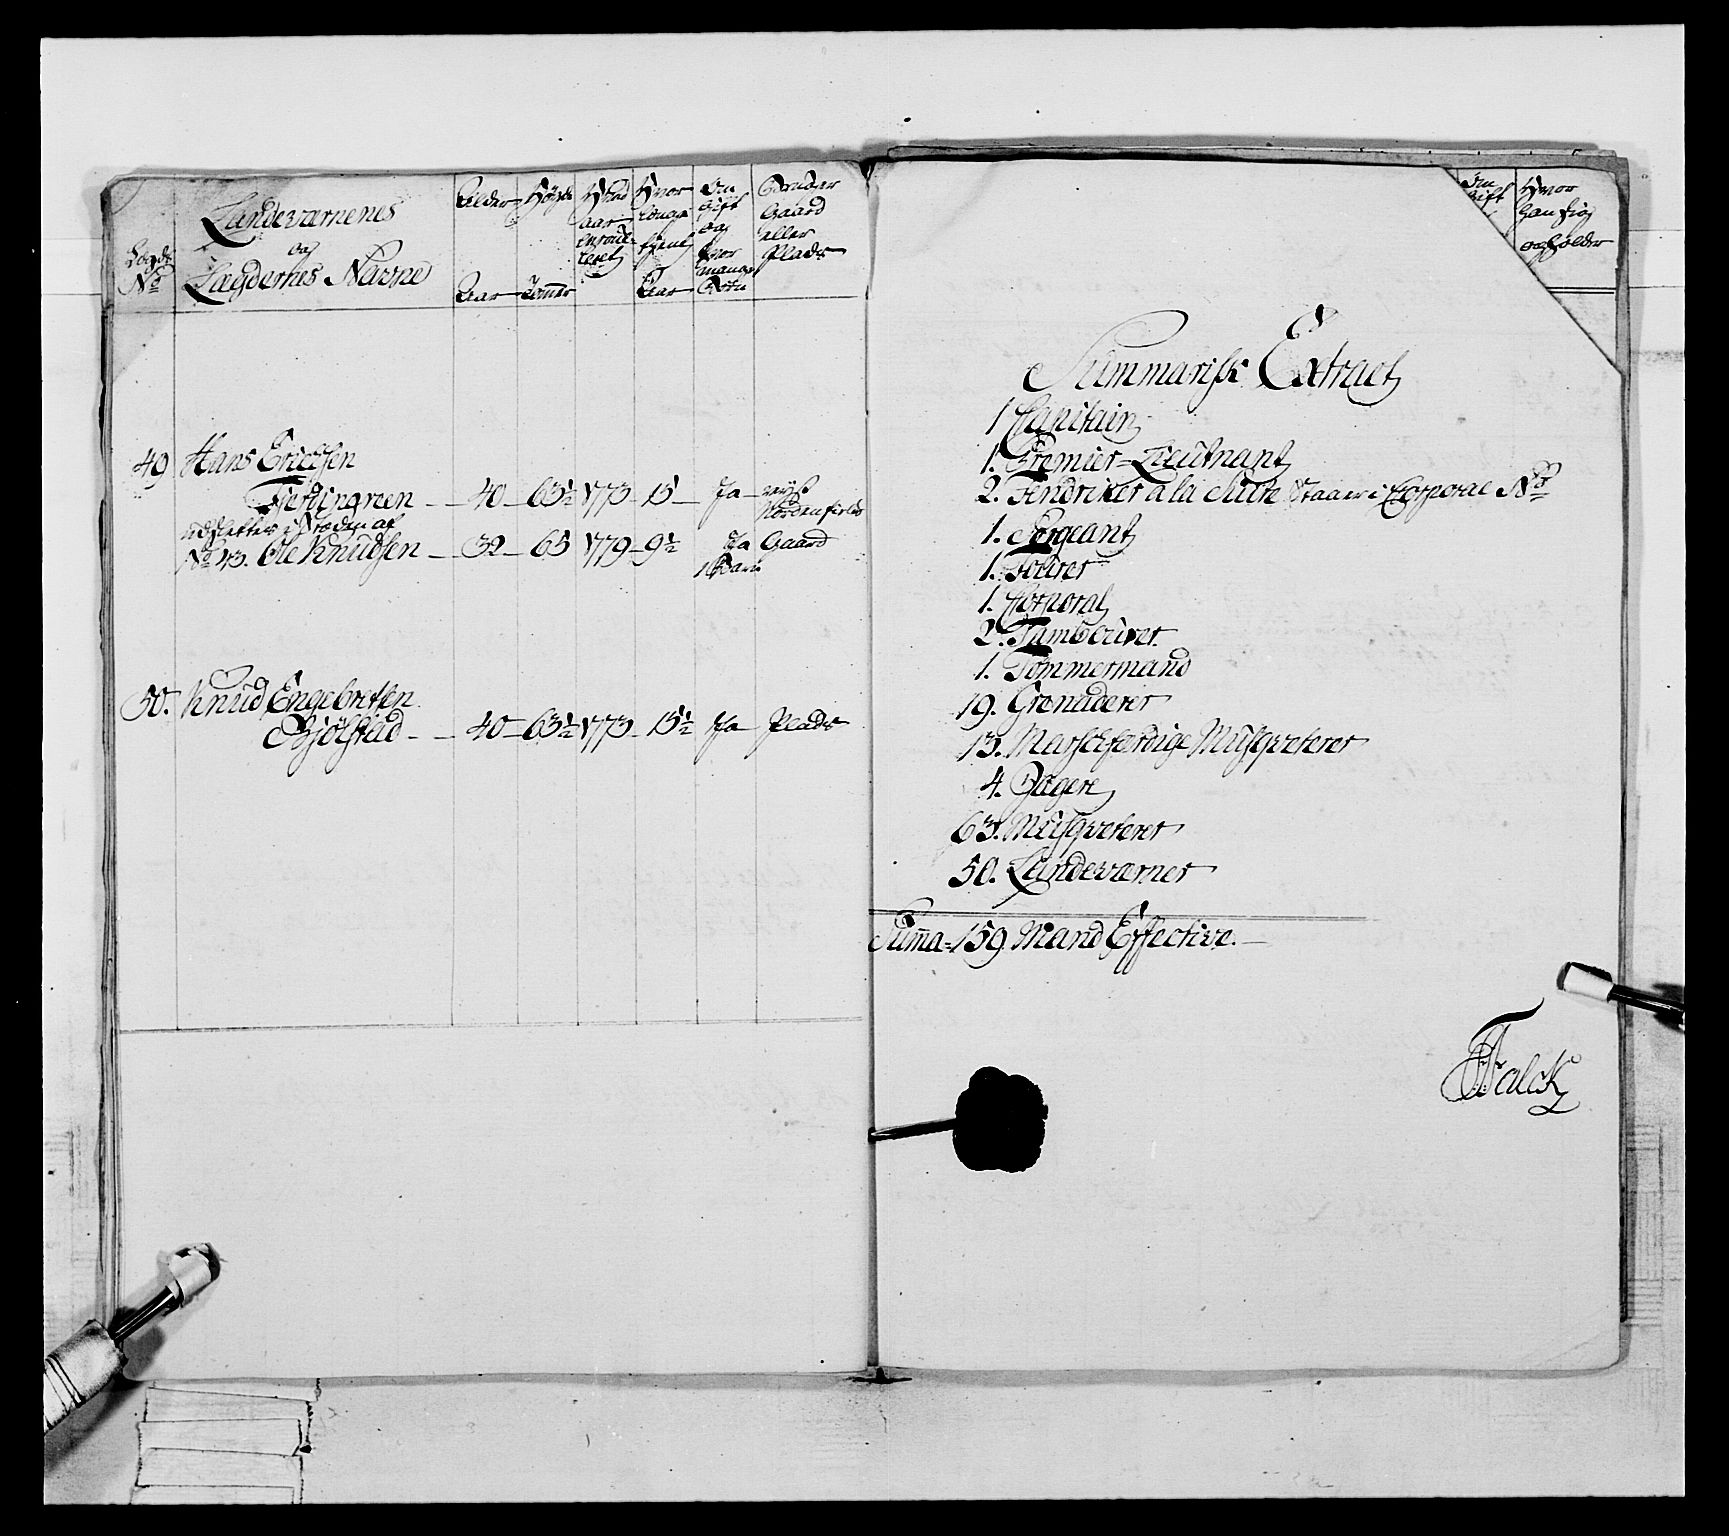 Lægds No
Landeværnenes
og
Lægdernes Navne
Alder
Aar
Høyde
Tommer
Hvad
aar
enroul-
leret
Hvor
længe
tient
Aar
Om
Gift
og
hvor
mange
Børn
Bonder
Gaard
eller
Plads
49 Hans Ericksen
Fierdingreen - 40 - 63½ 1773 - 15 - Ja - reyst
Nordenfields
udsletter i Steden af
No 43. Ole Knudsen - 32 - 65 1779 - 9½ Ja Gaard
1 Barn
50. Knud Engebretsen
Gjølstad - 40 - 63½ 1773 - 15½ Ja Plads
Om
Gift
Hvor
han sig
opholder
Summarisk Extract
1 Capitain
1. Premier=Lieutnant
2. Fendriker a la Suite Staaer i Corporal No
1. Sergeant
1. Fourer
1. Corporal
2. Tambourer
1. Tømmermand
19. Grenaderer
13. Marschfærdige Musqveterer
4. Jægere
63. Musqveterer
50. Landeværner
Summa=159. Mand Effective.
Falck